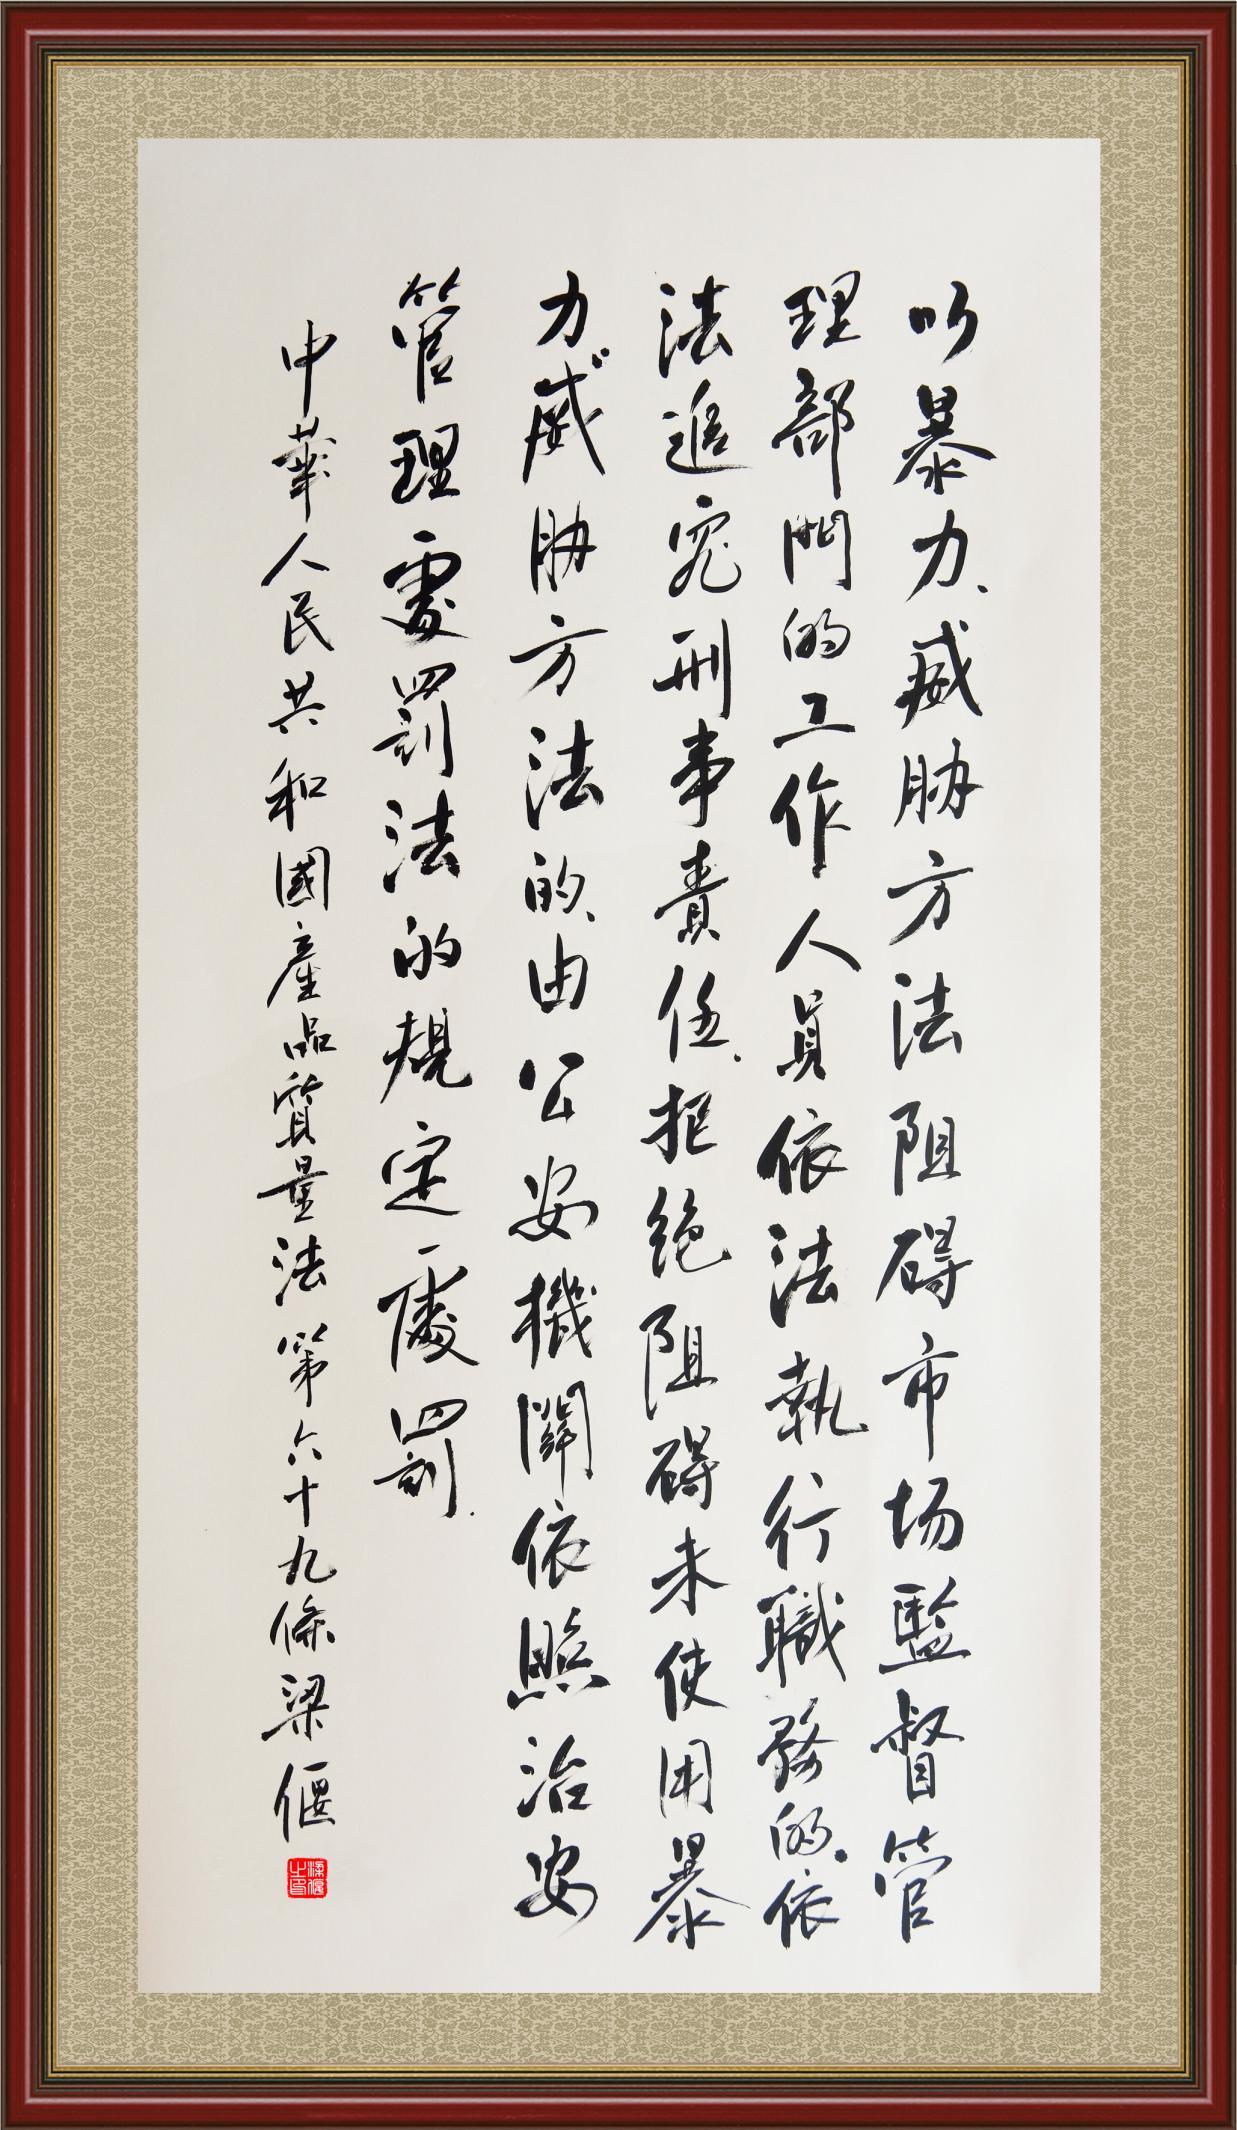 以暴力、威胁方法阻碍市场監督管
理部門的工作人員依法執行職務的、依
法追究刑事責任、拒绝阻碍未使用暴
力、威胁方法的、由公安機關依照治安
管理處罰法的規定處罰.
中華人民共和國產品質量法第六十九條梁偃
梁偃之印